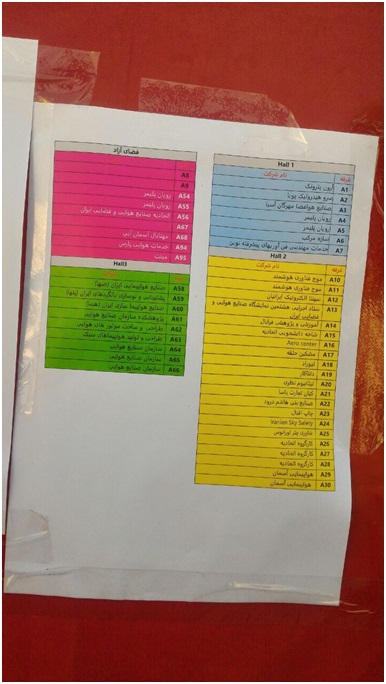 Hall 1
غرفه نام شرکت
A1
A2 سرو هیدرولیک پویا
A3 صنایع هوافضا مهرگان آسیا
A4 رویان پلیمر
A5 رویان پلیمر
A6 سازه مرکب
A7 خدمات مهندسی فن آوریهای پیشرفته نوین
Hall 2
غرفه نام شرکت
A10 موج فناوری هوشمند
A11 موج فناوری هوشمند
A12 سپنتا الکترونیک ایرانیان
A13 ستاد اجرایی هشتمین نمایشگاه صنایع هوایی و
فضایی ایران
A14 آموزشی و پژوهشی فراپال
A15 شاخه دانشجویی اتحادیه
A16 Aero center
A17
A18
A19
A20
A21 کیان تجارت یاسا
A22 صنایع بتنی هاشم درود
A23 چاپ اقبال
A24 Iranian Sky Safety
A25
A26 کارگروه اتحادیه
A27 کارگروه اتحادیه
A28 کارگروه اتحادیه
A29 هواپیمایی آسمان
A30 هواپیمایی آسمان
فضای آزاد
A8
A9
A54 رویان پلیمر
A55 رویان پلیمر
A56 اتحادیه صنایع هوایی و فضایی ایران
A67
A68 مهتابال آسمان آبی
A94 خدمات هوایی پارس
A95
Hall3
A58 صنایع هواپیماسازی ایران (هسا)
A59 پشتیبانی و نوسازی بالگردهای ایران (پنها)
A60 صنایع هواپیما سازی ایران (هسا)
A61 پژوهشکده سازمان صنایع هوایی
A62 طراحی و ساخت موتور های هوایی
A63 طراحی و تولید هواپیماهای سبک
A64 سازمان صنایع هوایی
A65 سازمان صنایع هوایی
A66 سازمان صنایع هوایی